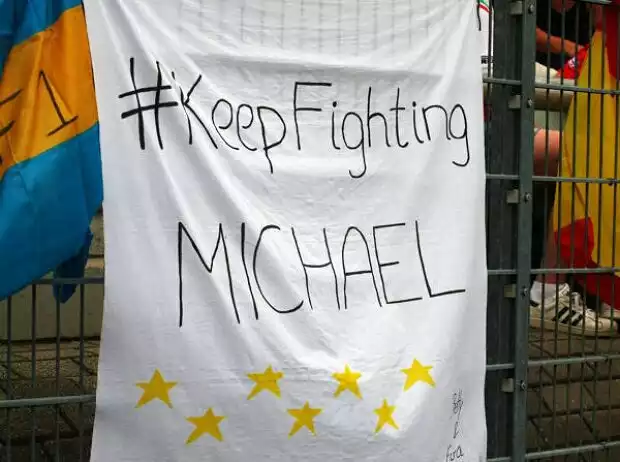 #KeepFighting
MICHAEL